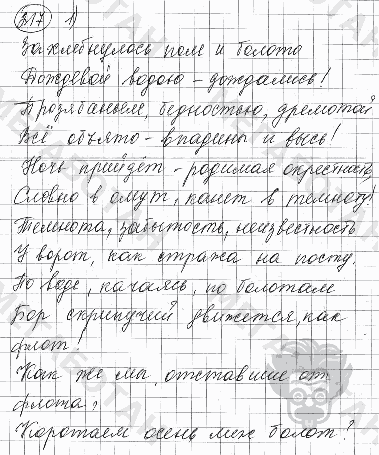 317 1)
Захлебнулось поле и болото
Дождевой водою – дождались!
Прозябаньем, бедностью, дремотой
Всё объято – впадины и высь!
Ночь придёт – родимая окрестность,
Словно в омут, канет в темноту!
Темнота, забытость, неизвестность
У ворот, как стража на посту.
По воде, качаясь, по болотам
Бор скрипучий движется, как
флот!
Как же мы, отставшие от
флота,
Коротаем осень меж болот?